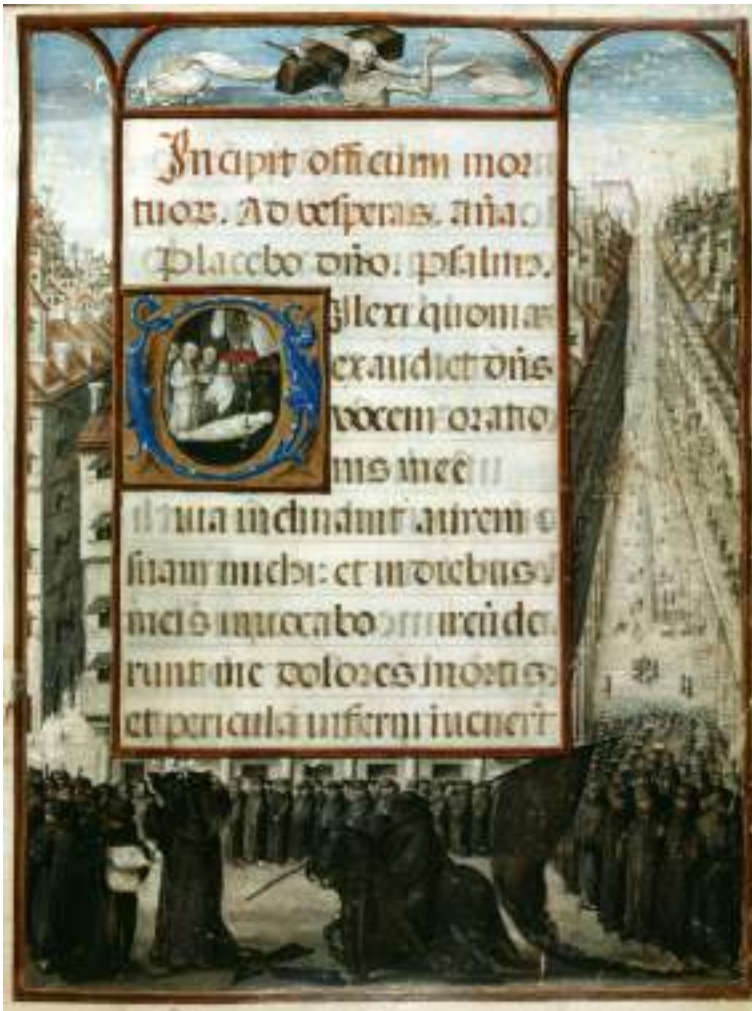 Incipit officium mor
tuor. Ad vesperas. Aña.
Placebo dño. Psalm9.
Dilexi quoniā
exaudiet dñs
vocem oratio
nis mee
Quia inclinavit aurem
suam michi: et in diebus
meis invocabo Circūde
runt me dolores mortis:
et pericula inferni īvenerūt